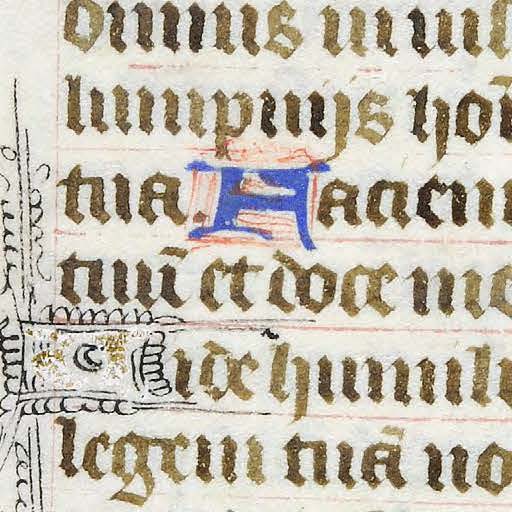 omnis inius
lumpnijs hoĩ
tua. Faciem
tuũ et doce me
Vide humili
legem tuã no